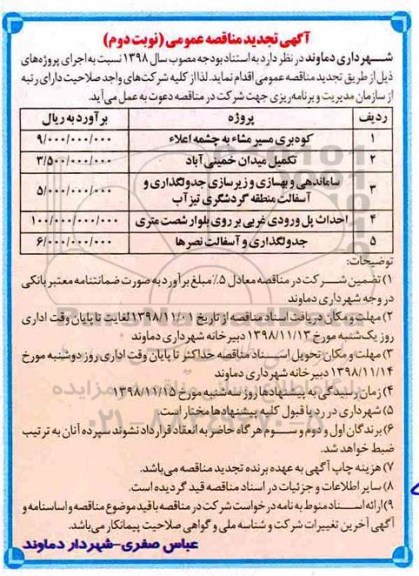 آگهی تجدید مناقصه عمومی (نوبت دوم)
شهرداری دماوند در نظر دارد به استناد بودجه مصوب سال ۱۳۹۸ نسبت به اجرای پروژه‌های
ذیل از طریق تجدید مناقصه عمومی اقدام نماید. لذا از کلیه شرکت‌های واجد صلاحیت دارای رتبه
از سازمان مدیریت و برنامه‌ریزی جهت شرکت در مناقصه دعوت به عمل می‌آید.
ردیف پروژه برآورد به ریال
۱ کوه‌بری مسیر مشاء به چشمه اعلاء ۹/۰۰۰/۰۰۰/۰۰۰
۲ تکمیل میدان خمینی آباد ۳/۵۰۰/۰۰۰/۰۰۰
۳ ساماندهی و بهسازی و زیرسازی جدولگذاری و
آسفالت منطقه گردشگری تیزآب ۵/۰۰۰/۰۰۰/۰۰۰
۴ احداث پل ورودی غربی بر روی بلوار شصت متری ۱۰۰/۰۰۰/۰۰۰/۰۰۰
۵ جدولگذاری و آسفالت نصرها ۶/۰۰۰/۰۰۰/۰۰۰
توضیحات:
۱) تضمین شرکت در مناقصه معادل ۵٪ مبلغ برآورد به صورت ضمانتنامه معتبر بانکی
در وجه شهرداری دماوند
۲) مهلت و مکان دریافت اسناد مناقصه از تاریخ ۱۳۹۸/۱۱/۰۱ لغایت تا پایان وقت اداری
روز یک‌شنبه مورخ ۱۳۹۸/۱۱/۱۳ دبیرخانه شهرداری دماوند
۳) مهلت و مکان تحویل اسناد مناقصه حداکثر تا پایان وقت اداری روز دوشنبه مورخ
۱۳۹۸/۱۱/۱۴ دبیرخانه شهرداری دماوند
۴) زمان رسیدگی به پیشنهادها روز سه شنبه مورخ ۱۳۹۸/۱۱/۱۵
۵) شهرداری در رد یا قبول کلیه پیشنهادها مختار است.
۶) برندگان اول و دوم و سوم هر گاه حاضر به انعقاد قرارداد نشوند سپرده آنان به ترتیب
ضبط خواهد شد.
۷) هزینه چاپ آگهی به عهده برنده تجدید مناقصه می‌باشد.
۸) سایر اطلاعات و جزئیات در اسناد مناقصه قید گردیده است.
۹) ارائه اسناد منوط به نامه درخواست شرکت در مناقصه با قید موضوع مناقصه و اساسنامه و
آگهی آخرین تغییرات شرکت و شناسه ملی و گواهی صلاحیت پیمانکار می‌باشد.
عباس صفری-شهردار دماوند